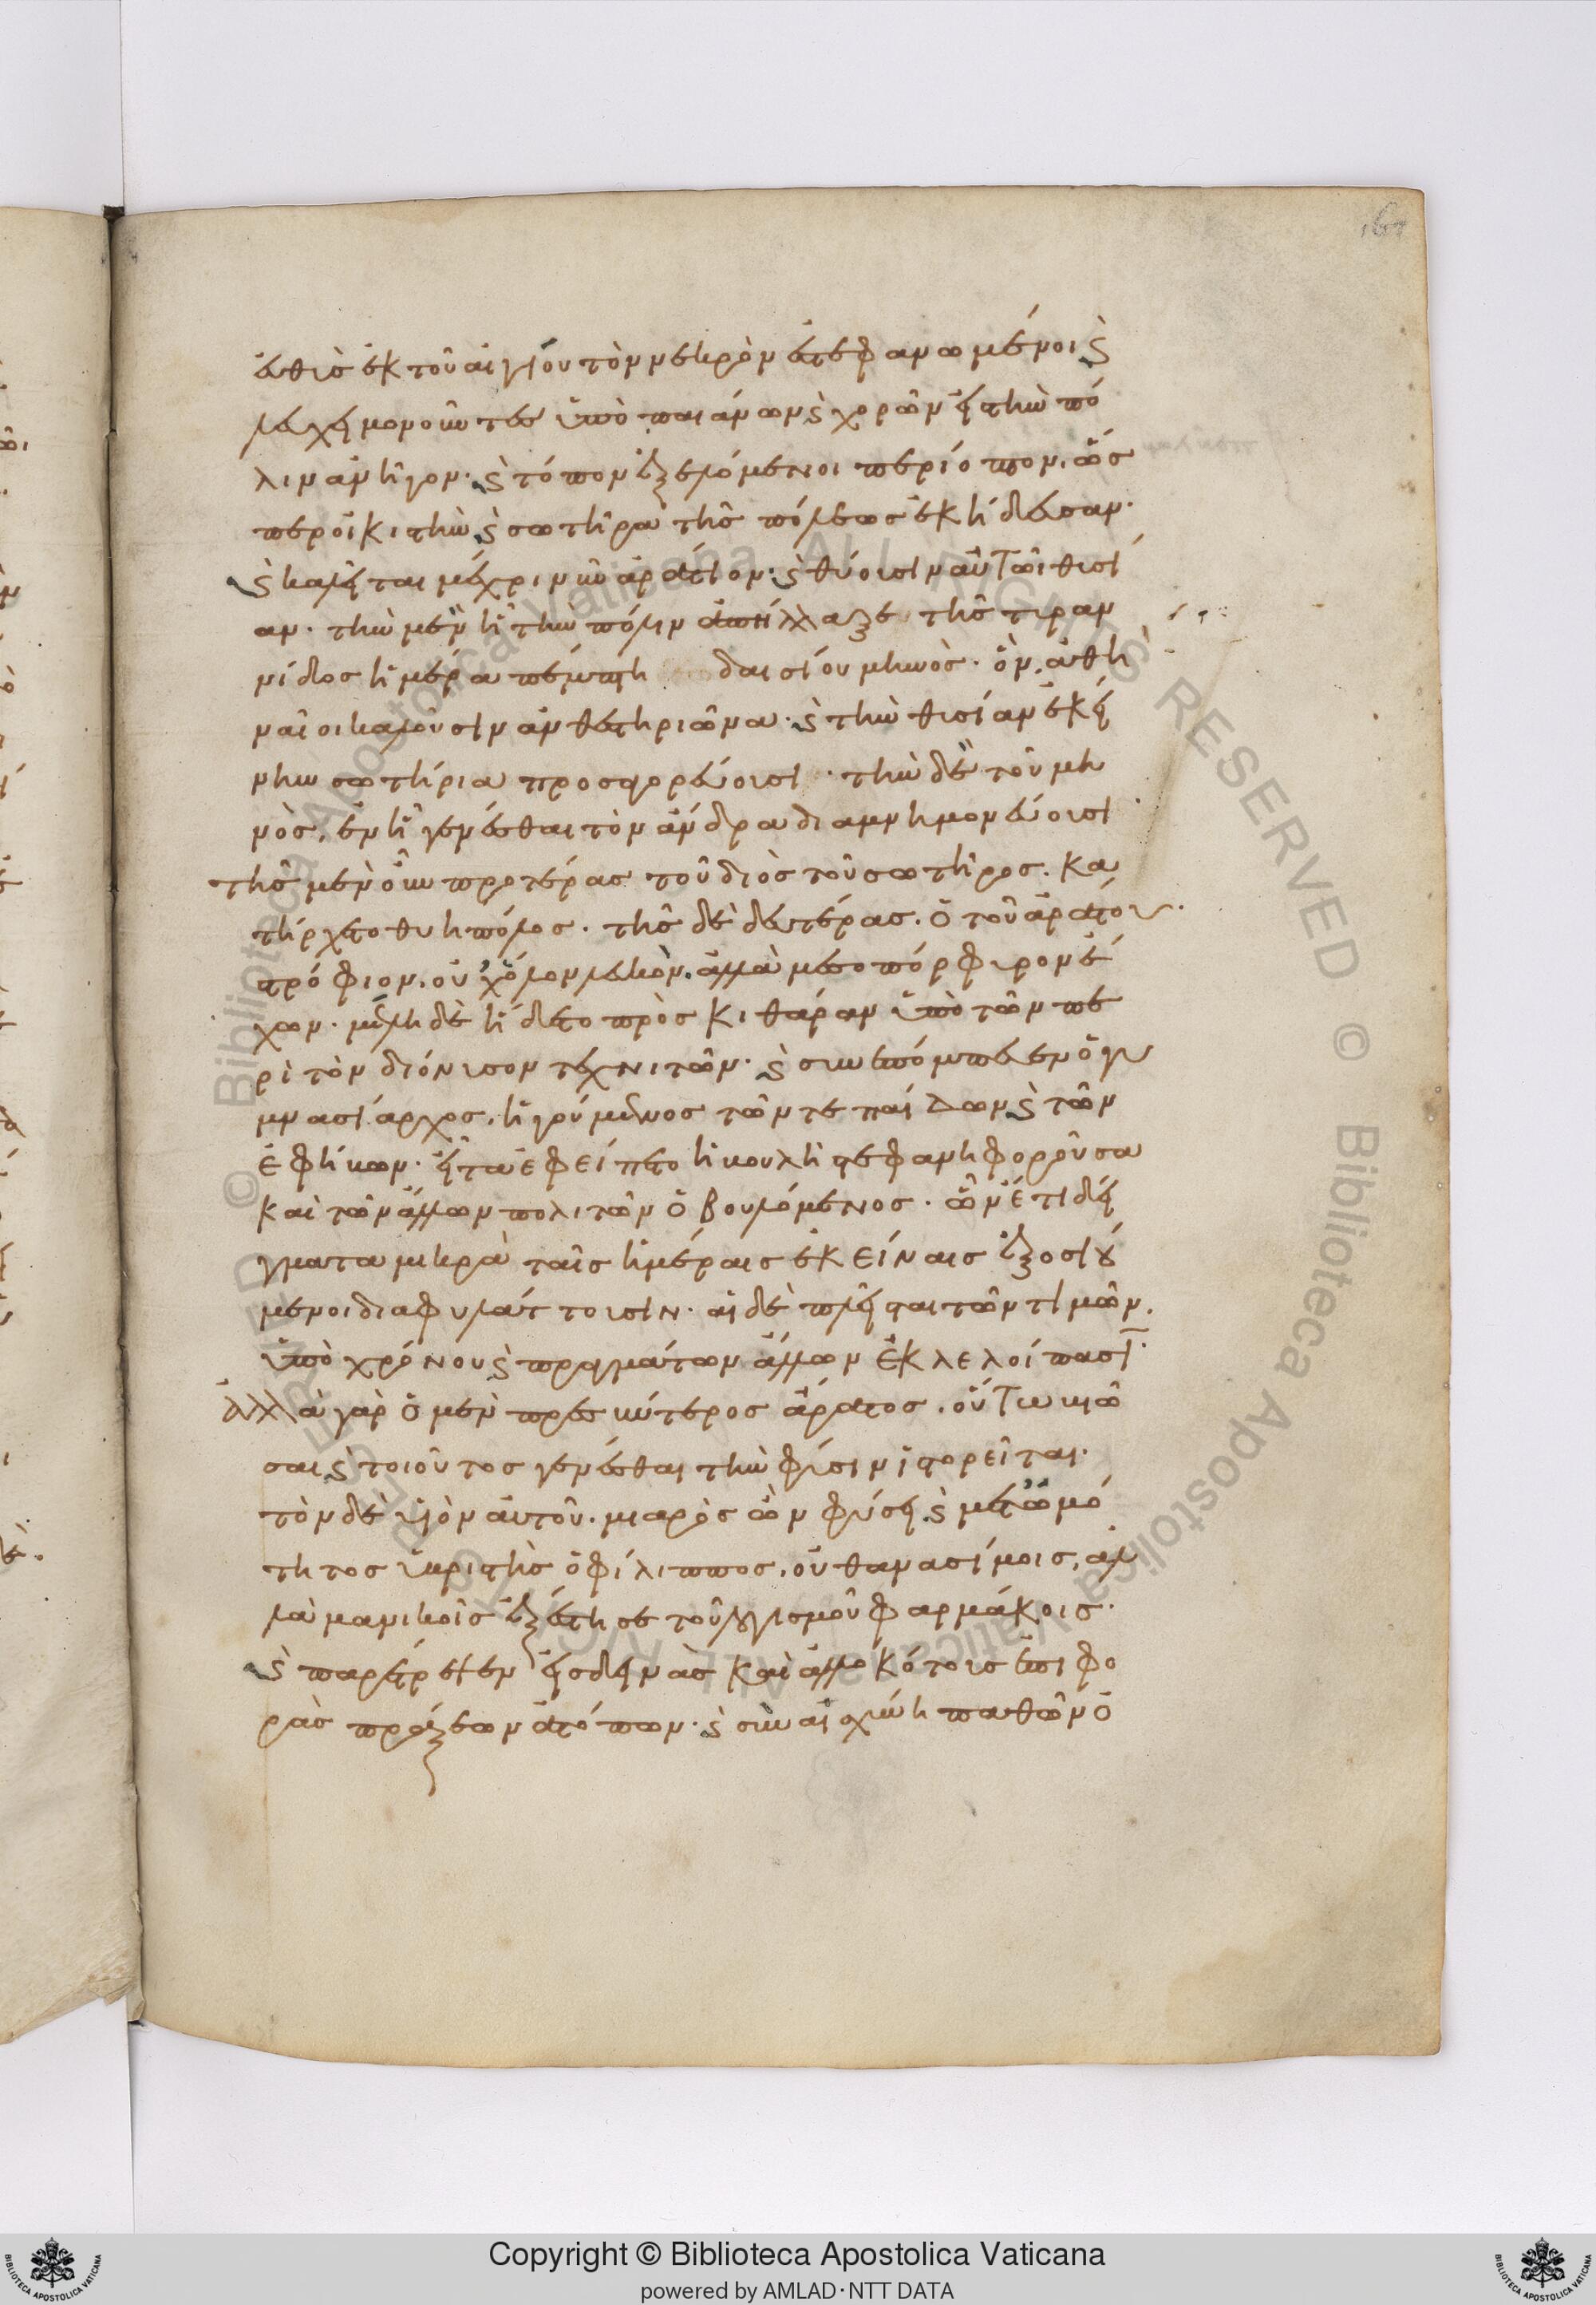 εὐθὺς ἐκ τοῦ αἰγίου τὸν νεκρὸν ἐστεφανωμένοι ϗ
λευχημονοῦντες ὑπὸ παιάνων ϗ χορῶν εἰς τὴν πό
λιν ἀνῆγον· ϗ τόπον ἐξελόμενοι περίοπτον, ὥσ
περ οἰκιστὴν ϗ σωτῆρα τῆς πόλεως ἐκήδευσαν·
ϗ καλεῖται μέχρι νῦν ἀράτιον· ϗ θύουσιν αὐτῶι θυσί
αν· τὴν μὲν ἧ τὴν πόλιν ἀπήλλαξε τῆς τυραν
νίδος ἡμέρα πέμπτη δαισίου μηνὸς· ὃν ἀθη
ναῖοι καλοῦσιν ἀνθεστηριῶνα· ϗ τὴν θυσίαν ἐκεί
νην σωτήρια προσαγορεύουσι· τὴν δὲ τοῦ μη
νὸς, ἐν ἧ γενέσθαι τὸν ἄνδρα διαμνημονεύουσι
τῆς μὲν οὖν προτέρας τοῦ διὸς τοῦ σωτῆρος· κα
τήρχετο θυηπόλος· τῆς δὲ δευτέρας, ὁ τοῦ ἀράτου·
στρόφιον, οὐχ ὅλον λευκὸν, ἀλλὰ μεσοπόρφυρον ἔ
χων· μέλη δὲ ἤδετο πρὸς κιθάραν ὑπὸ τῶν πε
ρὶ τὸν διόνυσον τεχνιτῶν· ϗ συνεπόμπευεν ὁ γυ
μνασίαρχος, ἡγούμενος τῶν τε παίδων ϗ τῶν
ἐφήβων· εἶτα ἐφείπετο ἡ βουλὴ στεφανηφοροῦσα
καὶ τῶν ἄλλων πολιτῶν ὁ βουλόμενος· ὧν ἔτι δεί
γματα μικρὰ ταῖς ἡμέραις ἐκείναις ἐξοσιού
μενοι διαφυλάττουσιν· αἱ δὲ πλεῖσται τῶν τιμῶν,
ὑπὸ χρόνου ϗ πραγμάτων ἄλλων ἐκλελοίπασι·
ἀλλὰ γὰρ ὁ μὲν πρεσβύτερος ἄρατος, οὕτω βιῶ
σαι ϗ τοιοῦτος γενέσθαι τὴν φύσιν ἱστορεῖται·
τὸν δὲ υἱὸν αὐτοῦ· μιαρὸς ὢν φύσει ϗ μετ' ὠμό
τητος ὑβριστὴς ὁ φίλιππος, οὐ θανασίμοις, ἀλ
λὰ μανικοῖς ἐξέστησε τοῦ λογισμοῦ φαρμάκοις·
ϗ παρέτρεψεν εἰς δεινὰς καὶ ἀλλοκότους ἐπιφο
ρὰς πράξεων ἀτόπων· ϗ σὺν αἰσχύνη παθῶν ὁ
Copyright © Biblioteca Apostolica Vaticana
powered by AMLAD·NTT DATA